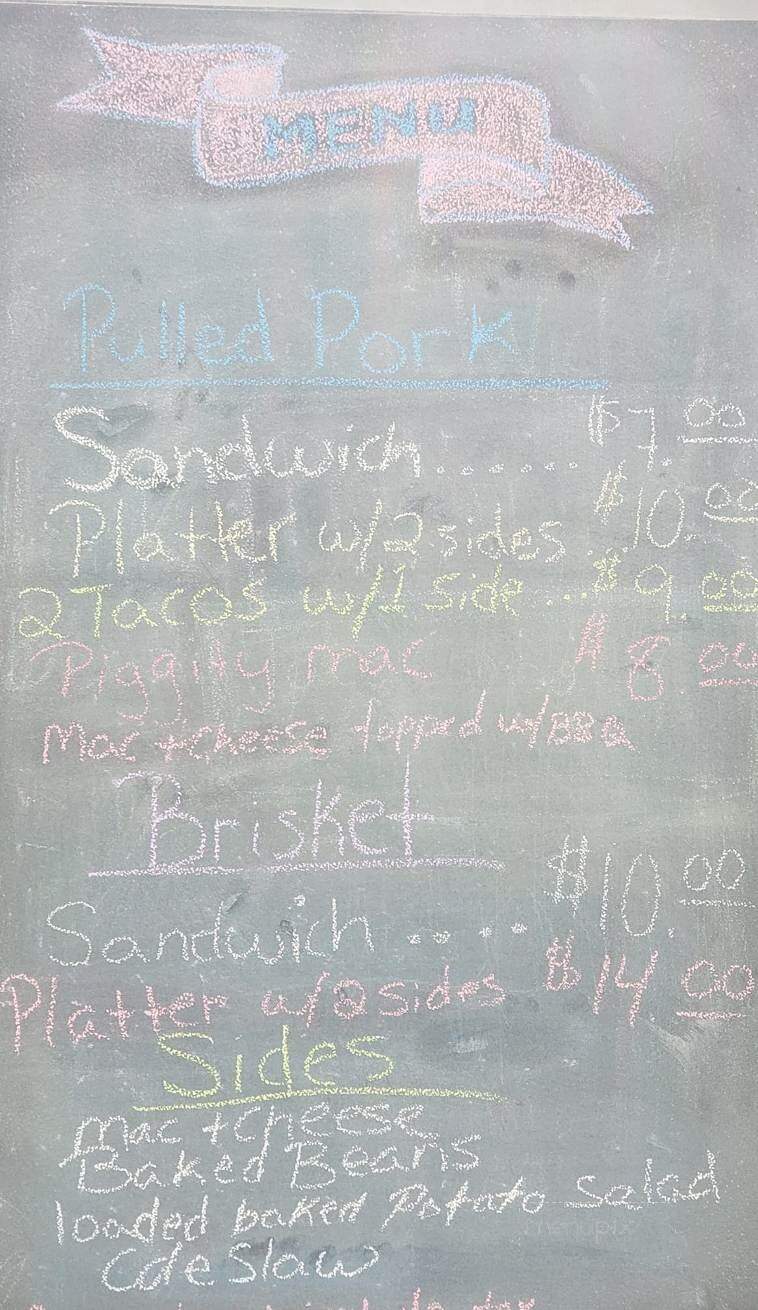 MENU
Pulled Pork
Sandwich...... $7.00
Platter w/2 sides... $10.00
2 Tacos w/1 side...$9.00
Piggily mac $8.00
Mac + cheese topped w/BBQ
Brisket
Sandwich .... $10.00
Platter w/2 sides $14.00
Sides
mac + cheese
Baked Beans
loaded baked Potato Salad
Cole Slaw